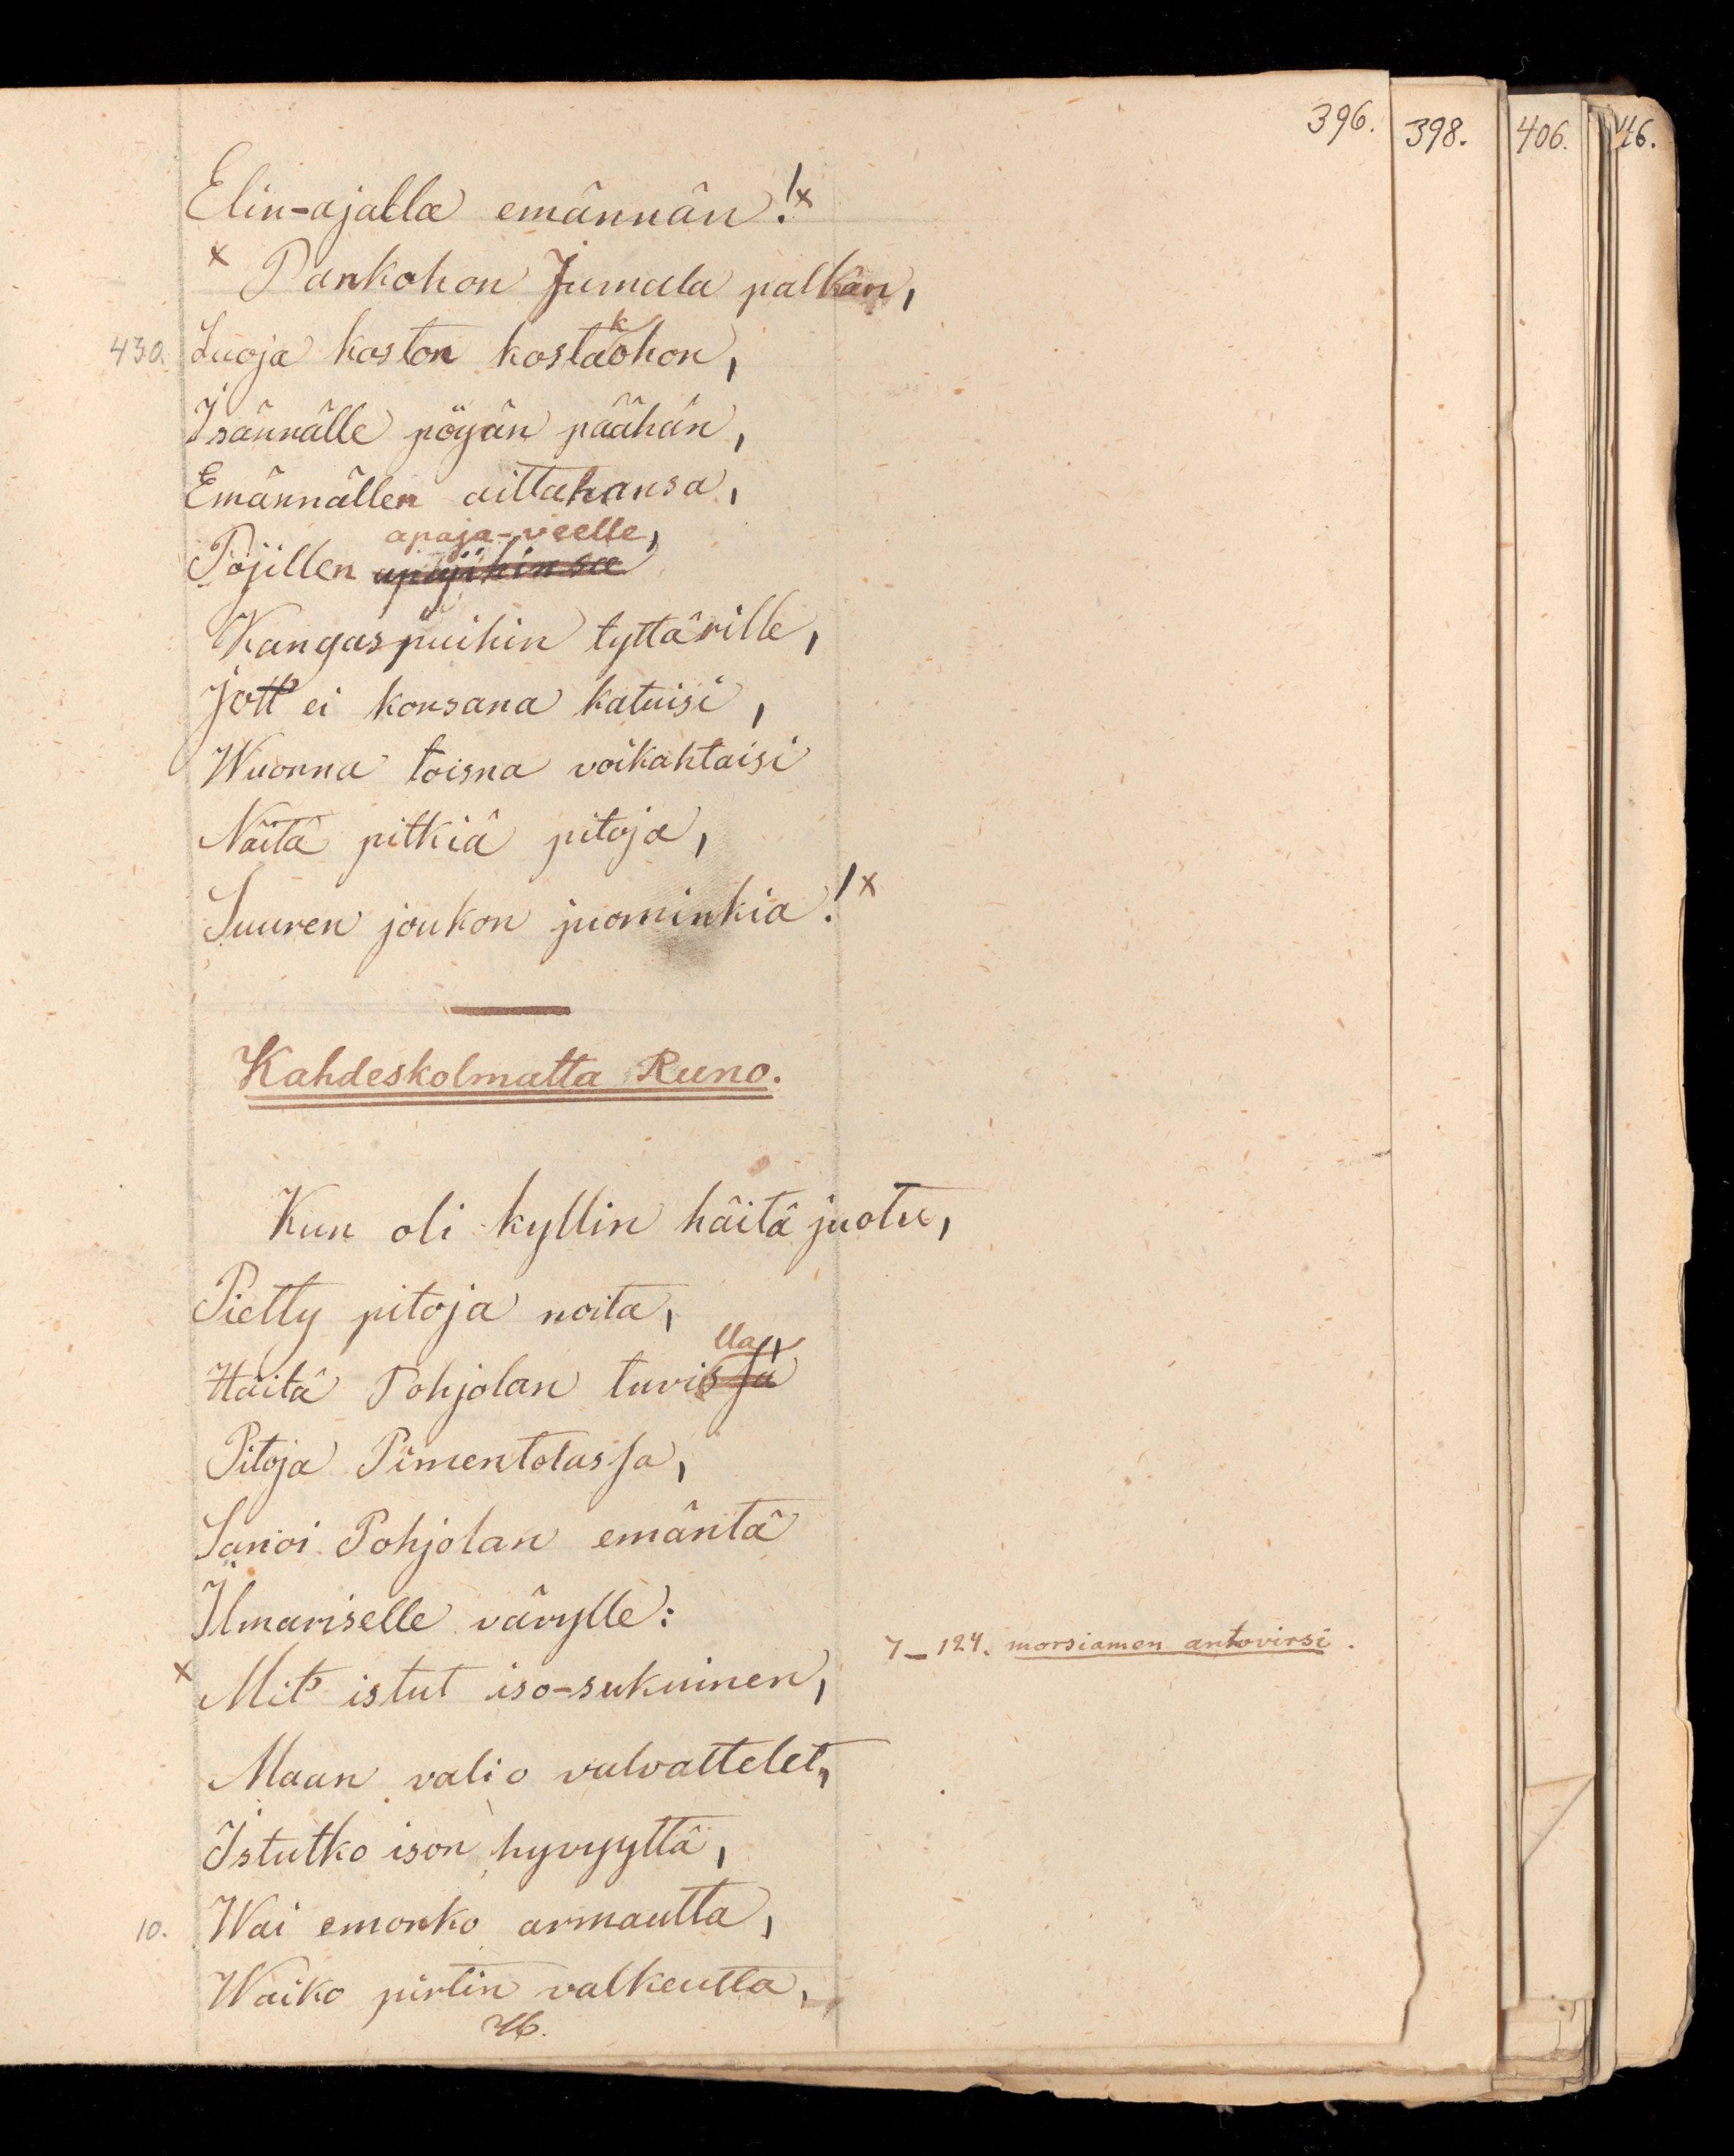 396. 398. 406. 46.
Elin-ajalla emännän!x
x Pankohon Jumala palkan,
430. Luoja koston kostakohon,
Isännälle pöyän päähän,
Emännällen aittahansa,
apaja-veelle,
Pojillen apajihinsa
Kangaspuihin tyttärille,
Jott' ei konsana katuisi,
Wuonna toisna voikahtaisi
Näitä pitkiä pitoja,
Suuren joukon juominkia!x
Kahdeskolmatta Runo.
Kun oli kyllin häitä juotu,
Pietty pitoja noita,
lla,
Häitä Pohjolan tuvissa
Pitoja Pimentolassa,
Sanoi Pohjolan emäntä
Ilmariselle vävylle:
7–124. morsiamen antovirsi.
x Mit' istut iso-sukuinen,
Maan valio valvattelet,
Istutko ison hyvyyttä,
10. Wai emonko armautta,
Waiko pirtin valkeutta,